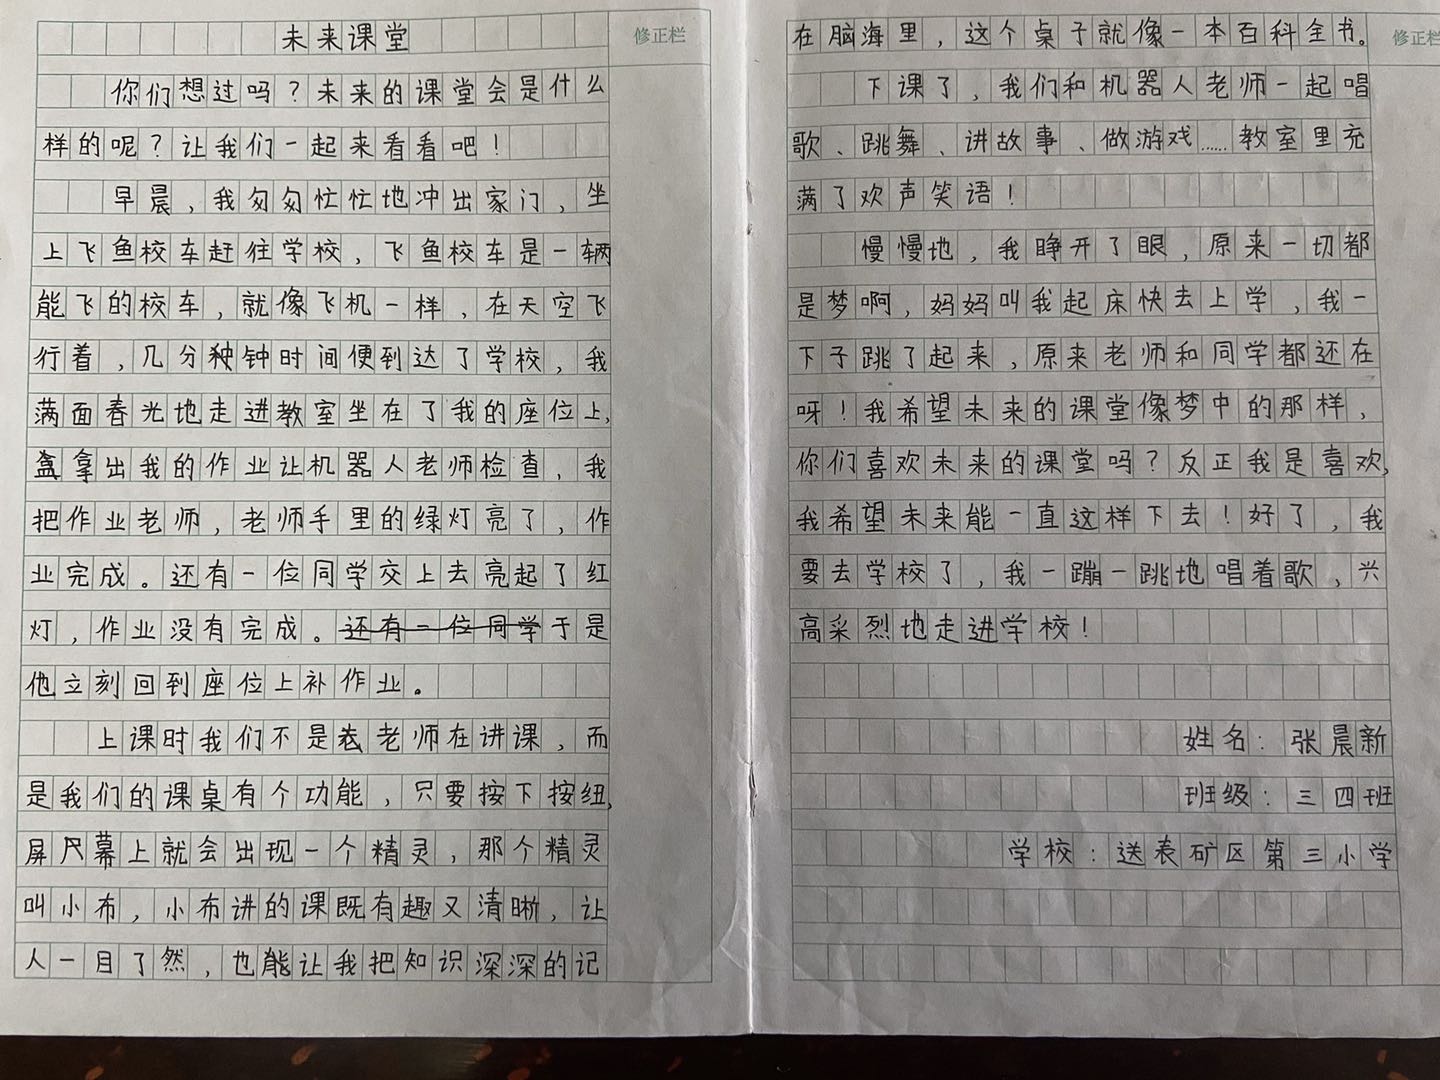 未来课堂
修正栏
你们想过吗？未来的课堂会是什么
样的呢？让我们一起来看看吧！
早晨，我匆匆忙忙地冲出家门，坐
上飞鱼校车赶往学校，飞鱼校车是一辆
能飞的校车，就像飞机一样，在天空飞
行着，几分钟时间便到达了学校，我
满面春光地走进教室坐在了我的座位上，
拿出我的作业让机器人老师检查，我
把作业老师，老师手里的绿灯亮了，作
业完成。还有一位同学交上去亮起了红
灯，作业没有完成。还有一位同学于是
他立刻回到座位上补作业。
上课时我们不是老师在讲课，而
是我们的课桌有个功能，只要按下按纽，
屏幕上就会出现一个精灵，那个精灵
叫小布，小布讲的课既有趣又清晰，让
人一目了然，也能让我把知识深深的记
在脑海里，这个桌子就像一本百科全书。
修正栏
下课了，我们和机器人老师一起唱
歌、跳舞、讲故事、做游戏……教室里充
满了欢声笑语！
慢慢地，我睁开了眼，原来一切都
是梦啊，妈妈叫我起床快去上学，我一
下子跳了起来，原来老师和同学都还在
呀！我希望未来的课堂像梦中的那样，
你们喜欢未来的课堂吗？反正我是喜欢，
我希望未来能一直这样下去！好了，我
要去学校了，我一蹦一跳地唱着歌，兴
高采烈地走进学校！
姓名：张晨新
班级：三四班
学校：送表矿区第三小学